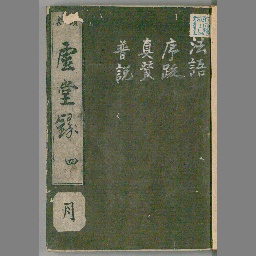 法語
序跋
真賛
普説
虚堂録 四
月